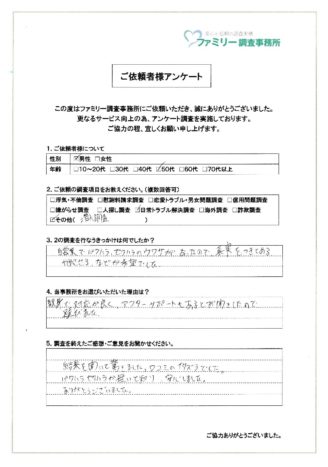 ファミリー調査事務所
ご依頼者様アンケート
この度はファミリー調査事務所にご依頼いただき、誠にありがとうございました。
更なるサービス向上の為、アンケート調査を実施しております。
ご協力の程、宜しくお願い申し上げます。
1. ご依頼者様について
性別 ☑男性 □女性
年齢 □10～20代 □30代 □40代 ☑50代 □60代 □70代以上
2. ご依頼の調査項目をお教えください。(複数回答可)
□浮気・不倫調査 □慰謝料請求調査 □恋愛トラブル・男女問題調査 □信用問題調査
□嫌がらせ調査 □人探し調査 ☑日常トラブル解決調査 □海外調査 □詐欺調査
☑その他(
3. 2の調査を行なうきっかけは何でしたか?
パワハラ、セクハラのウワサがあったので、事実
などが希望でした
4. 当事務所をお選びいただいた理由は?
対応が良く、アフターサポートもあるとお聞きしたので
頼みました
5. 調査を終えたご感想・ご意見をお聞かせください。
結果を聞いて驚きました。
パワハラ セクハラが 安心しました。
ありがとうございました。
ご協力ありがとうございました。